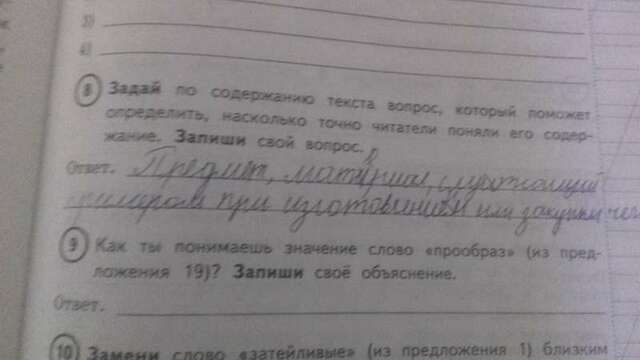 3)
4)
8 Задай по содержанию текста вопрос, который поможет
определить, насколько точно читатели поняли его содер-
жание. Запиши свой вопрос.
Ответ. Предмет, материал, служащий
при изготовлении или закупки чег
9 Как ты понимаешь значение слово «прообраз» (из пред-
ложения 19)? Запиши своё объяснение.
Ответ.
10 Замени слово «затейливые» (из предложения 1) близким